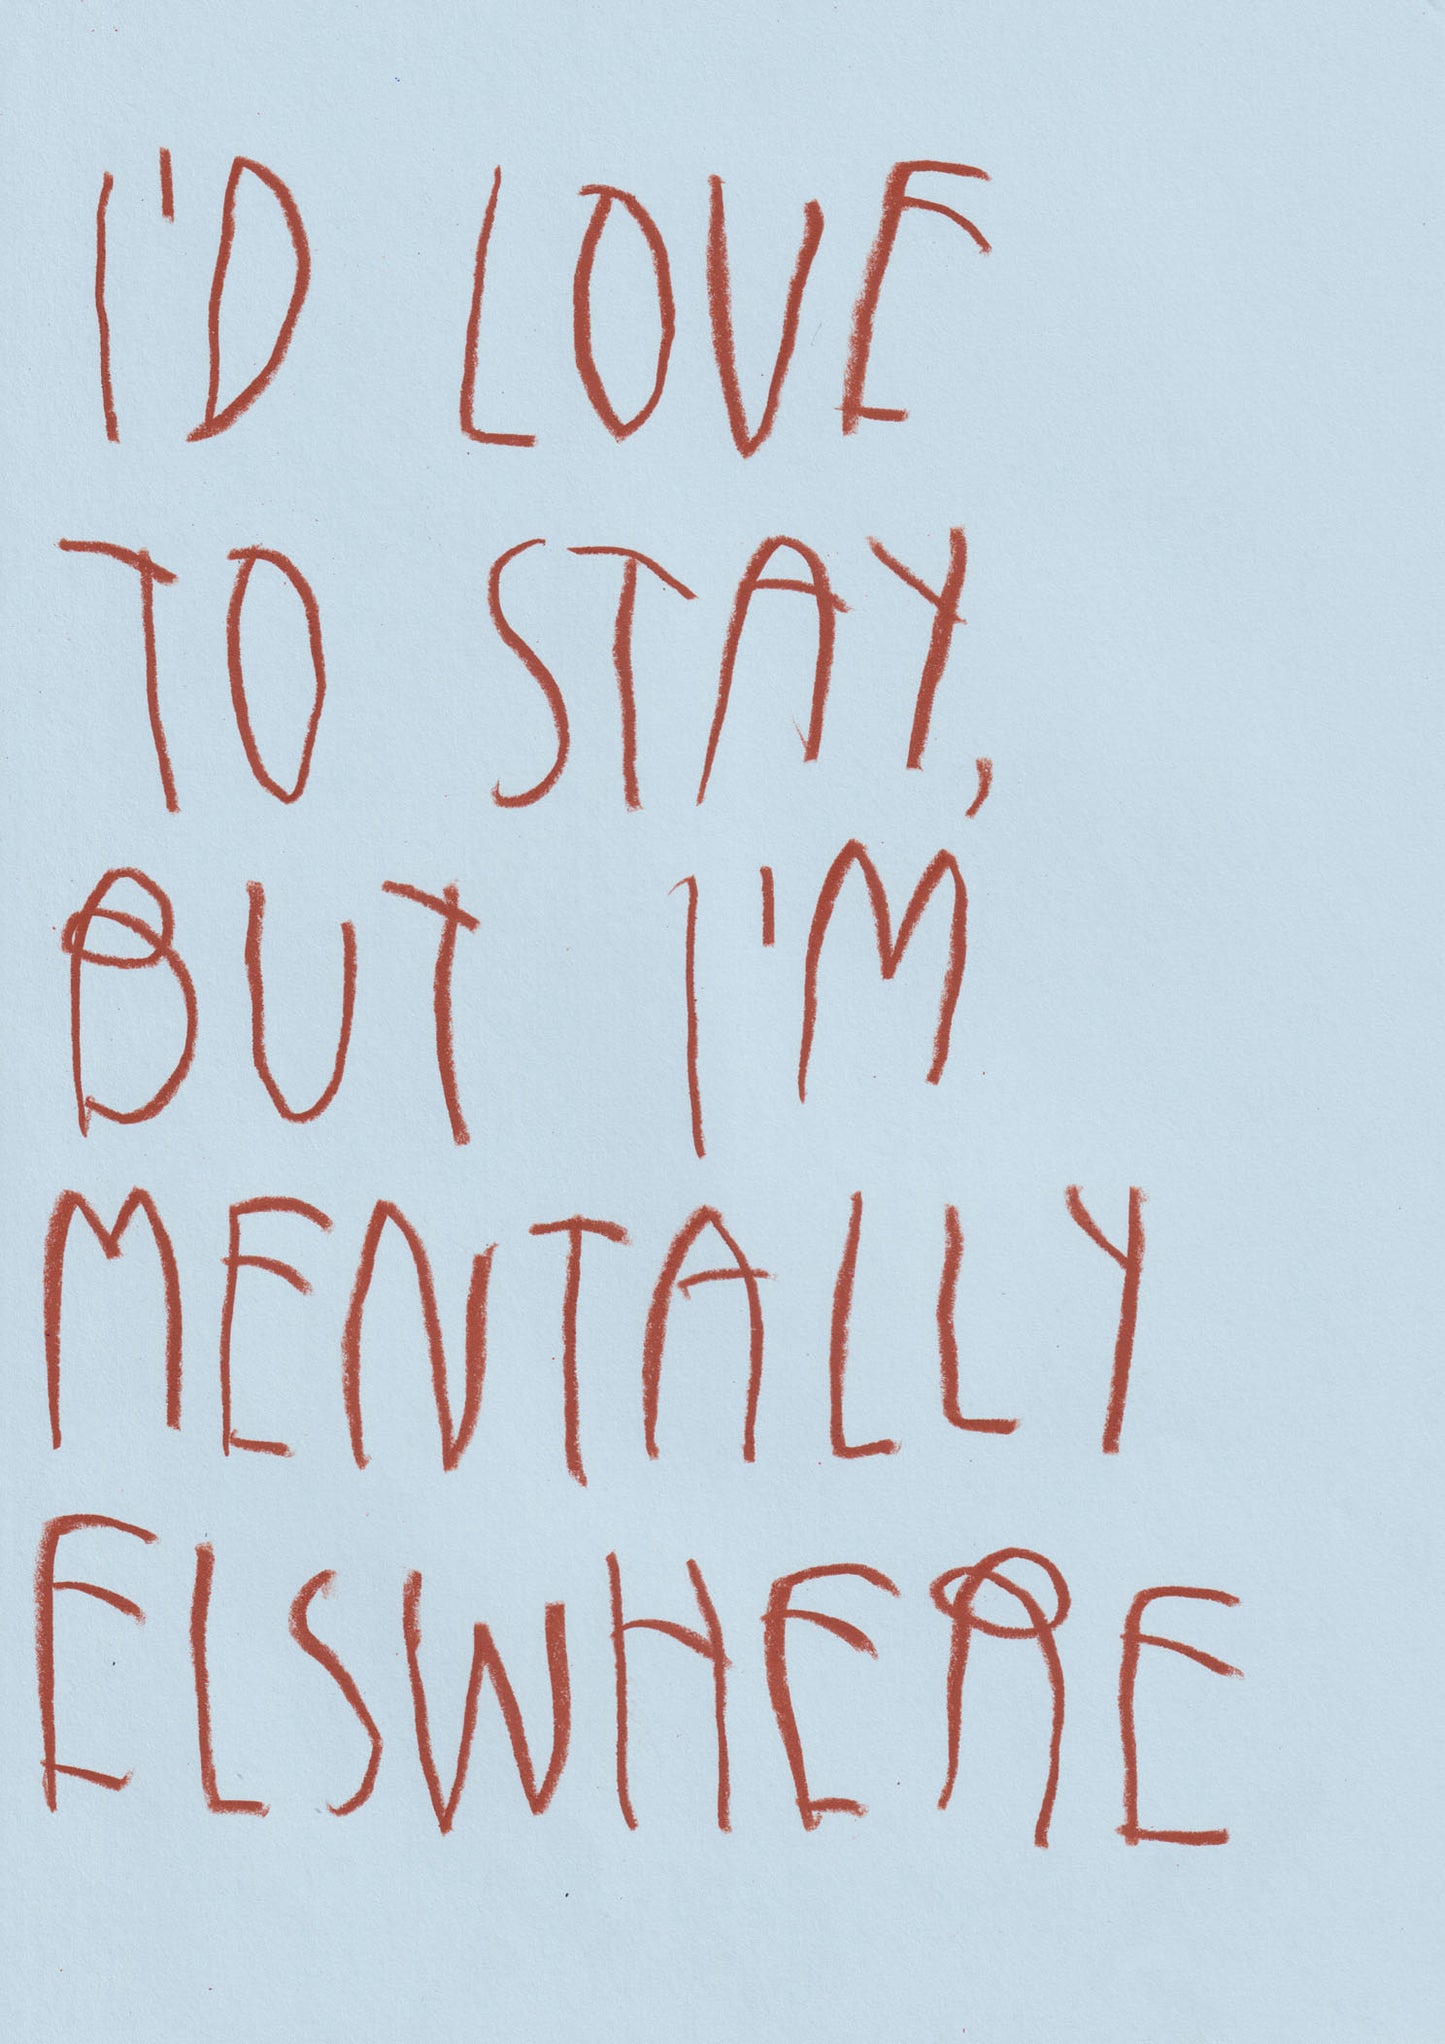 I'D LOVE
TO STAY,
BUT I'M
MENTALLY
ELSWHERE